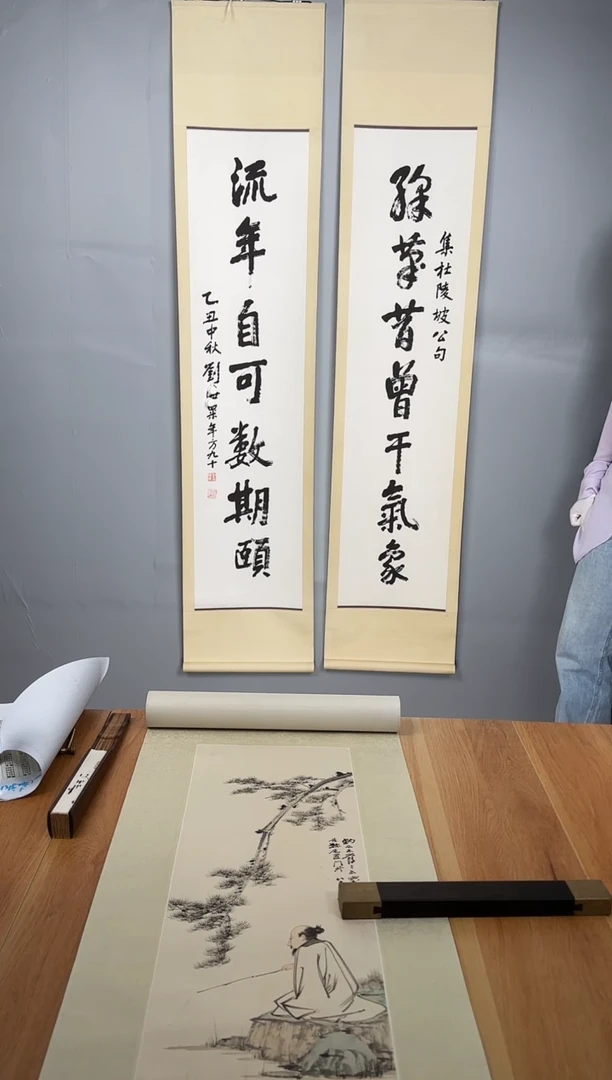 綵筆昔曾干氣象
集杜陵坡公句
流年自可數期頤
乙丑中秋劉海粟年方九十